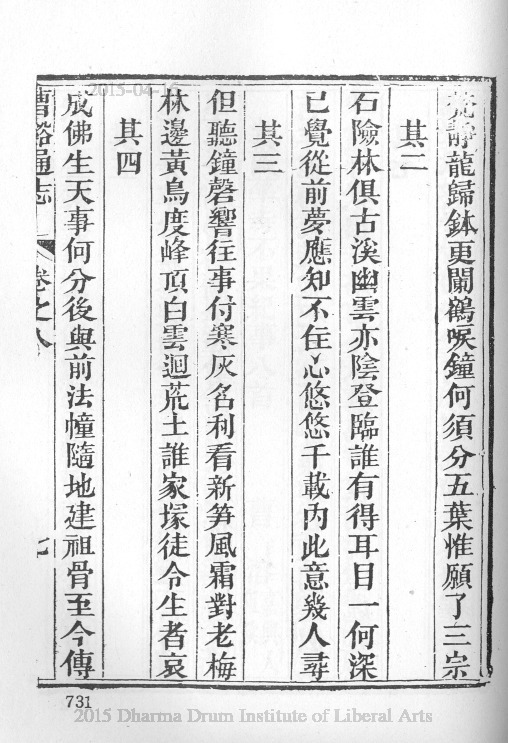 靜龍歸鉢更闌鶴唳鐘何須分五葉惟願了三宗
其二
石險林俱古溪幽雲亦陰登臨誰有得耳目一何深
已覺從前夢應知不住心悠悠千載內此意幾人尋
其三
但聽鐘磬響往事付寒灰名利看新筍風霜對老梅
林邊黃鳥度峰頂白雲迴荒土誰家塚徒令生者哀
其四
成佛生天事何分後與前法幢隨地建祖骨至今傳
曹谿通志
卷之八
七
731
2015-04-1
2015 Dharma Drum Institute of Liberal Arts